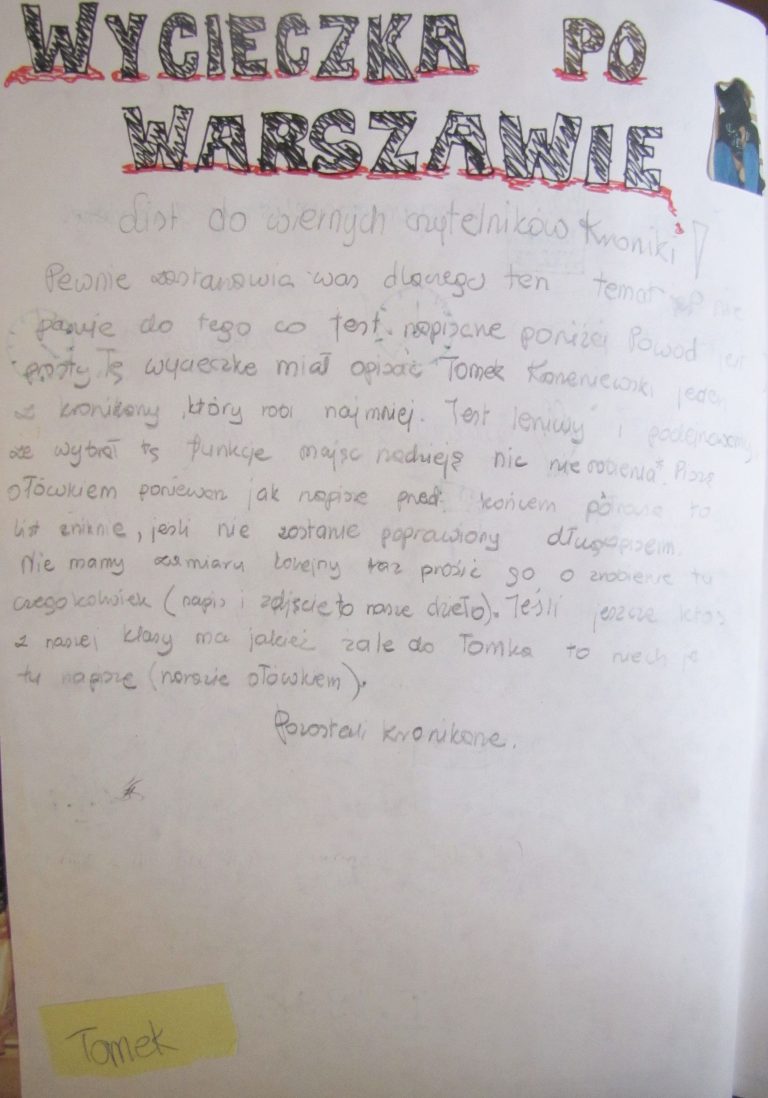 WYCIECZKA PO
WARSZAWIE
List do wiernych czytelników kroniki!
Pewnie zastanawia was dlaczego ten temat nie
pasuje do tego co jest napisane poniżej Powód jest
prosty Tę wycieczkę miał opisać Tomek Koneniewski jeden
z kronikarzy, który robi najmniej. Jest leniwy i podejrzewamy,
że wybrał tę funkcje mając nadzieję nic nie robienia". Piszę
ołówkiem ponieważ jak napisze przed końcem półrocza to
list zniknie, jeśli nie zostanie poprawiony długopisem.
Nie mamy zamiaru kolejny raz prosić go o zrobienie tu
czegokolwiek (napis i zdjęcie to nasze dzieło). Jeśli jeszcze ktoś
z naszej klasy ma jakieś żale do Tomka to niech je
tu napiszę (narazie ołówkiem).
Pozostali kronikarze.
Tomek